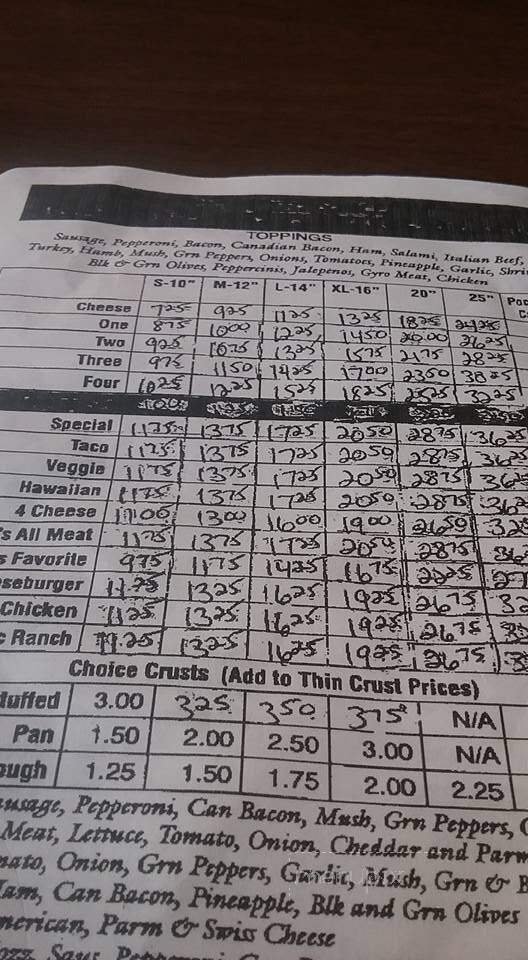 TOPPINGS
Sausage, Pepperoni, Bacon, Canadian Bacon, Ham, Salami, Italian Beef,
Turkey, Hamb, Mush, Grn Peppers, Onions, Tomatoes, Pineapple, Garlic, Shri
Blk & Grn Olives, Peppercinis, Jalepenos, Gyro Meat, Chicken
S-10" M-12" L-14" XL-16" 20" 25"
Cheese 725 925 1125 1325 1825 2425
One 875 1000 1225 1450 2000 2625
Two 925 1075 1325 1575 2175 2825
Three 975 1150 1425 1700 2350 3025
Four 1025 1225 1525 1825 2525 3225
Special 1175 1375 1725 2050 2875 3625
Taco 1175 1375 1725 2050 2875 3625
Veggie 1175 1375 1725 2050 2875 362
Hawaiian 1175 1375 1725 2050 2875 362
4 Cheese 11.00 1300 1600 1900 2650 32
's All Meat 1175 1375 1725 2050 2875 36
s Favorite 975 1175 1425 1675 2225 27
seburger 11.25 1325 1625 1925 2675
Chicken 1125 1325 1625 1925 2675
c Ranch 11.25 1325 1625 1925 2675
Choice Crusts (Add to Thin Crust Prices)
tuffed 3.00 325 350 375 N/A
Pan 1.50 2.00 2.50 3.00 N/A
ough 1.25 1.50 1.75 2.00 2.25
ausage, Pepperoni, Can Bacon, Mush, Grn Peppers,
Meat, Lettuce, Tomato, Onion, Cheddar and Parm
mato, Onion, Grn Peppers, Garlic, Mush, Grn & B
Ham, Can Bacon, Pineapple, Blk and Grn Olives
merican, Parm & Swiss Cheese